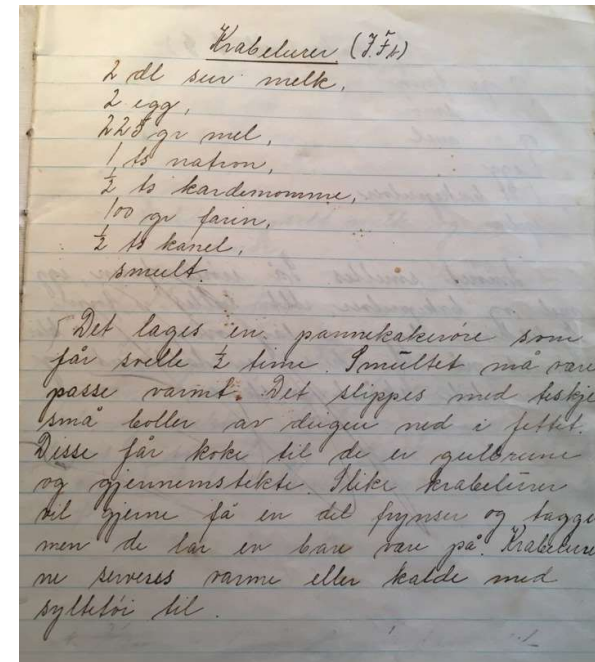 Krabelurer
2 dl sur melk,
2 egg,
225 gr mel,
1 ts natron,
½ ts kardemomme,
100 gr farin,
½ ts kanel,
smult.
Det lages en pannekakerøre som
får svelle ½ time. Smultet må være
passe varmt. Det slippes med teskje
små boller av deigen ned i fettet.
Disse får koke til de er gulbrune
og gjennemstekte. Slike krabelurer
vil gjerne få en del frynser og tagge
men de lar en bare være på. Krabelure
ne serveres varme eller kalde med
syltetøi til.